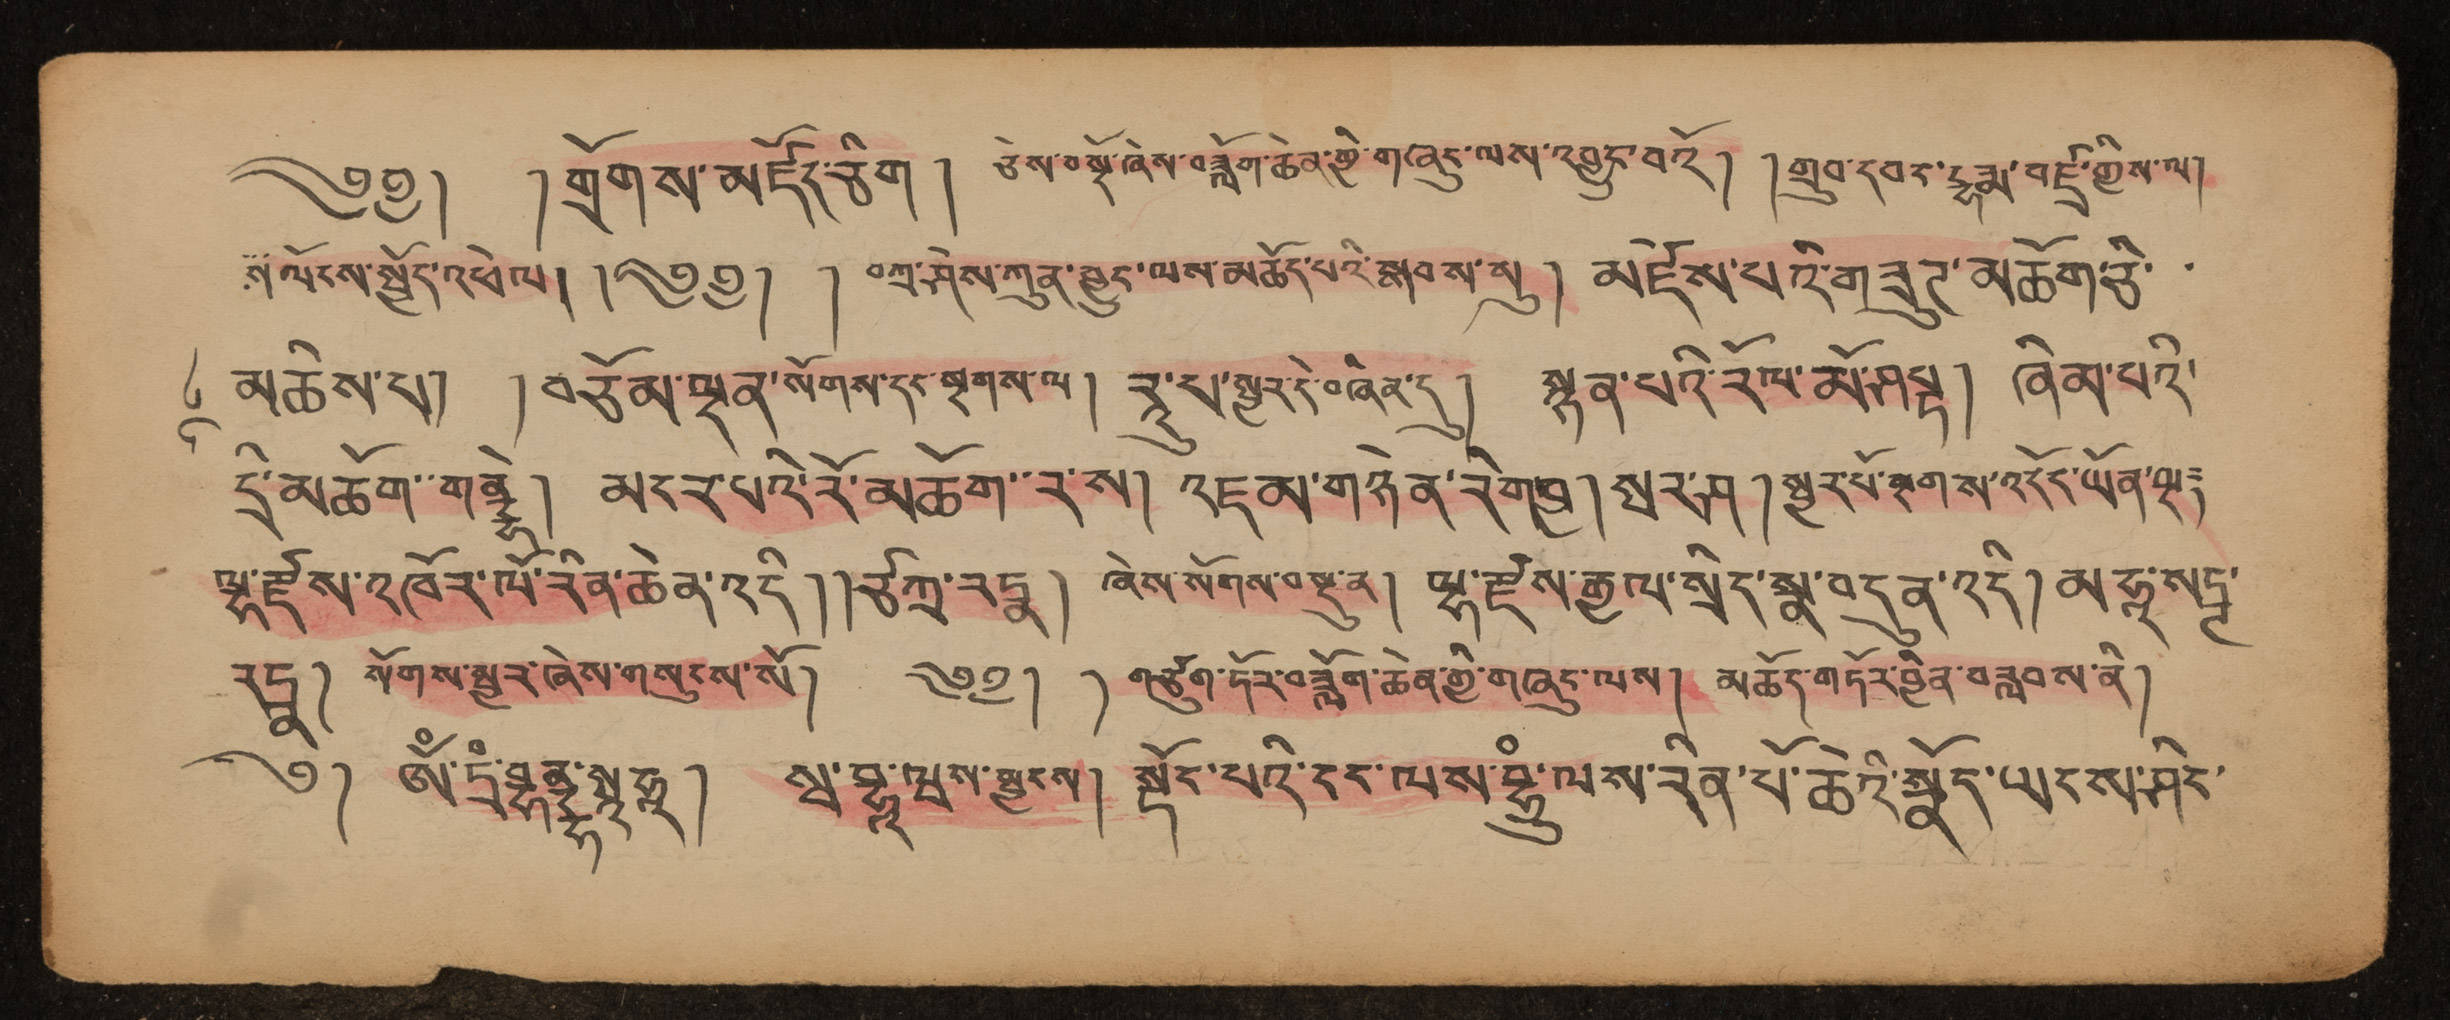 ༄༅། །གྲོགས་མཛོད་ཅིག །ཅེས་བསྔོ་ཞེས་བཟློག་ཆེན་གྱི་གཞུང་ལས་འབྱུང་བའོ། །གྲུབ་དབང་དྷརྨ་བཛྲ་གྱིས་ལ།
ལོངས་སྤྱོད་འཕེལ། །༄༅། །བཀྲ་ཤིས་ཀུན་སྤྱད་ལས་མཆོད་པའི་སྐབས་སུ། མཛེས་པའི་གཟུགས་མཆོག་ཅི་
མཆིས་པ། །བཅོམ་ལྡན་སོགས་དང་སྔགས་ལ། རཱུ་པ་སྤྱར་དེ་བཞིན་དུ། སྙན་པའི་རོལ་མོ་ཤཔྟ། ཞིམ་པའི་
དྲི་མཆོག་གནྡྷེ། མངར་པའི་རོ་མཆོག་ར་ས། འཇམ་གཉེན་རེག་བྱ། སྤར་ཤ །སྤྱར་པོ་སྔགས་འདོད་ཡོན་ལྔ
ལྷ་རྫས་འཁོར་ལོ་རིན་ཆེན་འདི། །ཙཀྲ་རཏྣ། ཞེས་སོགས་བསྡུན། ལྷ་རྫས་རྒྱལ་སྲིད་སྣ་བདུན་འདི། མ་ཧཱ་སཔྟ་
རཏྣ། སོགས་སྤྱར་ཞེས་གསུངས་སོ། ༄༅། །གཙུག་ཏོར་བཟློག་ཆེན་གྱི་གཞུང་ལས། མཆོད་གཏོར་བྱིན་བརླབས་ནི།
༄། ཨོཾ་ སྭཱ་ཧཱ། སྟོང་པའི་ངང་ལས་བྷྲཱུཾ་ལས་རིན་པོ་ཆེའི་སྣོད་ཡངས་ཤིང་